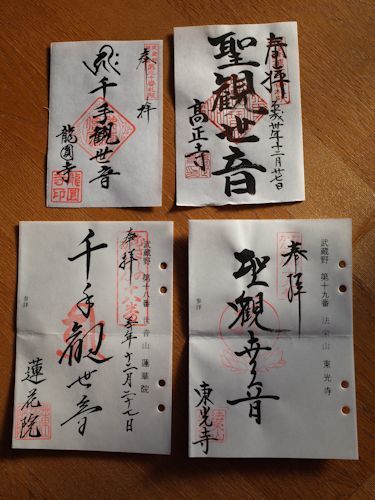 奉拝
千手観世音
龍圓寺
龍圓寺印
奉拝
平成卅年十二月廿七日
聖観世音
高正寺
武蔵野 第十八番 音山 蓮華院
奉拝
年十二月二十七日
千手観世音
蓮花院
参詳
武蔵野 第十九番 山 東光寺
奉拝
聖観世音
東光寺
参詳